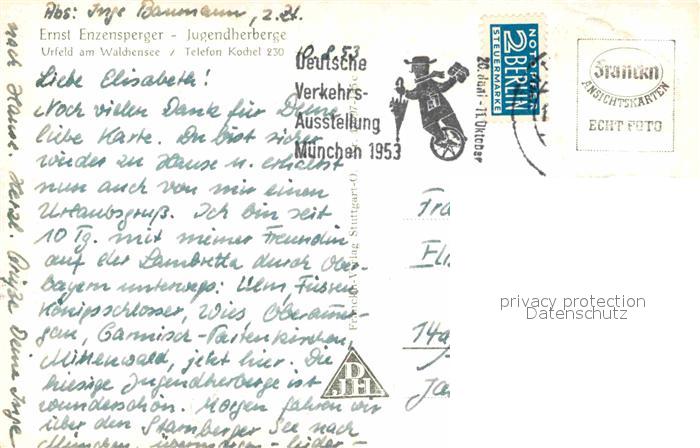 Abs: Inge Baumann, z. Zt.
Ernst Enzensperger - Jugendherberge
Urfeld am Walchensee / Telefon Kochel 230
10.8.53
Liebe Elisabeth!
Noch vielen Dank für Deine
liebe Karte. Du bist sicher
wieder zu Hause u. erhältst
nun auch von mir einen
Urlaubsgruß. Ich bin seit
10 Tg. mit meiner Freundin
auf der Lambretta durch Ober-
bayern unterwegs: Ulm, Füssen
Königsschlösser, Wies, Oberammer-
gau, Garmisch-Partenkirchen,
Mittenwald, jetzt hier. Die
hiesige Jugendherberge ist
wunderschön. Morgen fahren wir
über den Starnberger See nach
München, übermorgen - leider -
nach Hause. Herzl. Grüße Deine Inge
Deutsche
Verkehrs-
Ausstellung
München 1953
20. Juni - 11. Oktober
NOTOPFER
2 BERLIN
STEUERMARKE
Franckh
ANSICHTSKARTEN
ECHT FOTO
Franckh-Verlag Stuttgart-O.
DJH
Fra
Eli
14a
privacy protection
Datenschutz